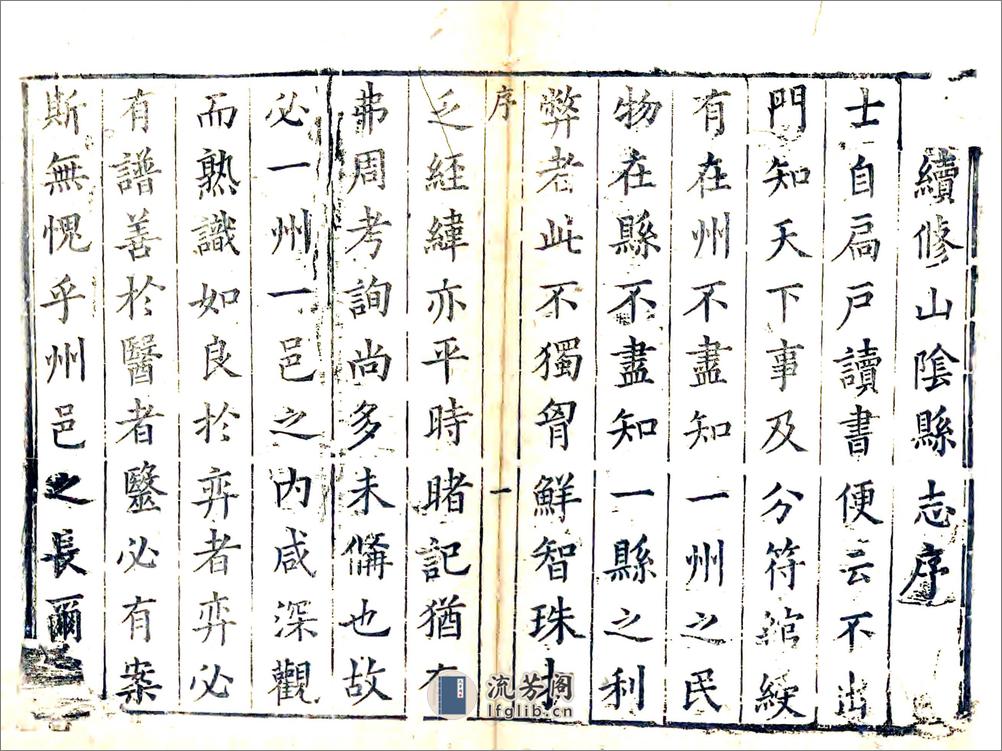 續修山陰縣志序
士自扃戶讀書便云不出
門知天下事及分符綰綬
有在州不盡知一州之民
物在縣不盡知一縣之利
弊者此不獨胷鮮智珠才
序 一
乏經緯亦平時睹記猶有
弗周考詢尚多未備也故
必一州一邑之內咸深觀
而熟識如良於弈者弈必
有譜善於醫者毉必有案
斯無愧乎州邑之長爾
流芳阁
lfglib.cn